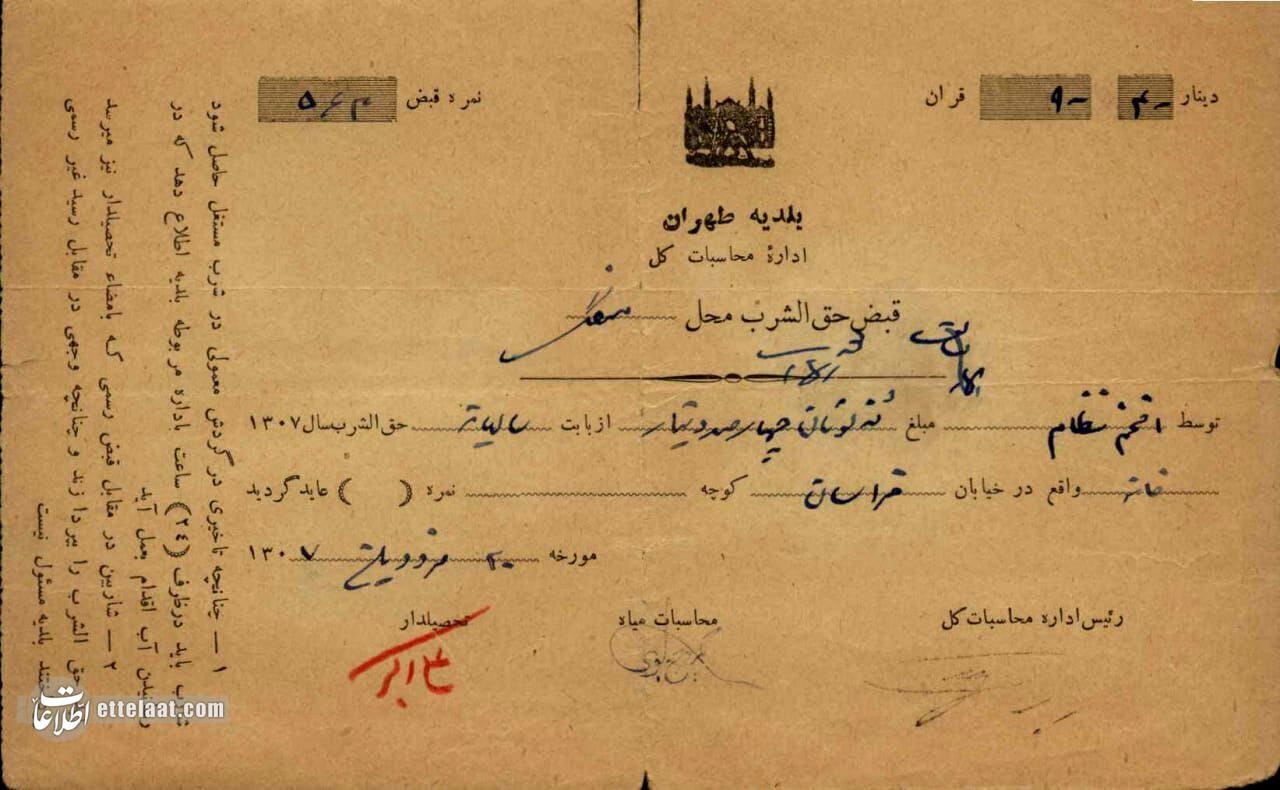 دینار ۴۰ ۹۰ قران
نمره قبض ۵۶۳
بلدیه طهران
ادارهٔ محاسبات کل
قبض حق الشرب محل
توسط افخم نظام مبلغ نه تومان چهار صد دینار از بابت سالیانه حق الشرب سال ۱۳۰۷
خانه واقع در خیابان خراسان کوچه نمره ( ) عاید گردید
مورخه ۲۰ فروردین ۱۳۰۷
رئیس اداره محاسبات کل
محاسبات میاه
تحصیلدار
۱ — چنانچه تاخیری در گردش معمولی در شرب مستغل حاصل شود
شارب باید در ظرف (۲۴) ساعت باداره مربوطه بلدیه اطلاع دهد که در
رسیدن آب اقدام بعمل آید
۲ — شاربین در مقابل قبض رسمی که بامضاء تحصیلدار نیز میرسد
حق الشرب را بپردازند و چنانچه وجهی در مقابل رسید غیر رسمی
بلدیه مسئول نیست
اطلاعات ettelaat.com